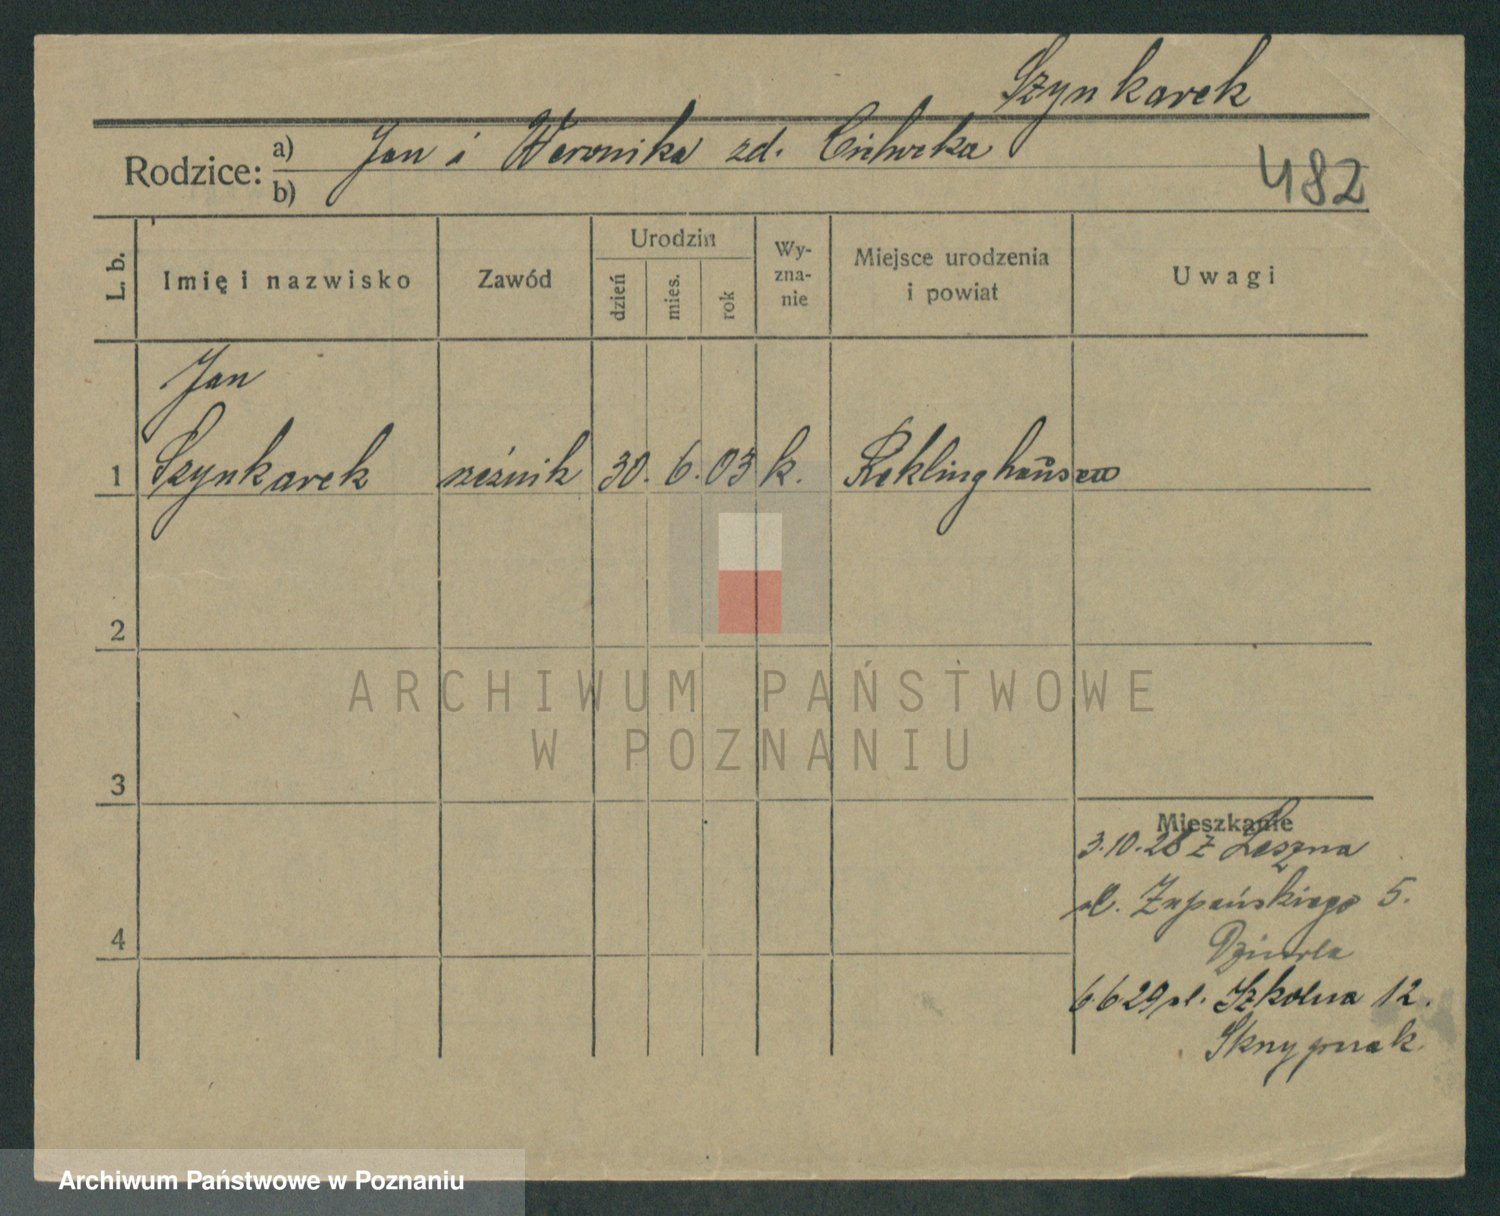 Szynkarek
Rodzice: a) Jan i Weronika zd.
b)
482
L. b.
Imię i nazwisko
Zawód
Urodzin
dzień
mies.
rok
Wy-
zna-
nie
Miejsce urodzenia
i powiat
Uwagi
Jan
1 Szynkarek rzeźnik 30. 6. 03 k. Reklinghausen
2
ARCHIWUM PAŃSTWOWE
W POZNANIU
3
Mieszkanie
3.10.28 z Leszna
ul. Żupańskiego 5.
4
6629 ul. Szkolna 12.
Skrzypczak
Archiwum Państwowe w Poznaniu